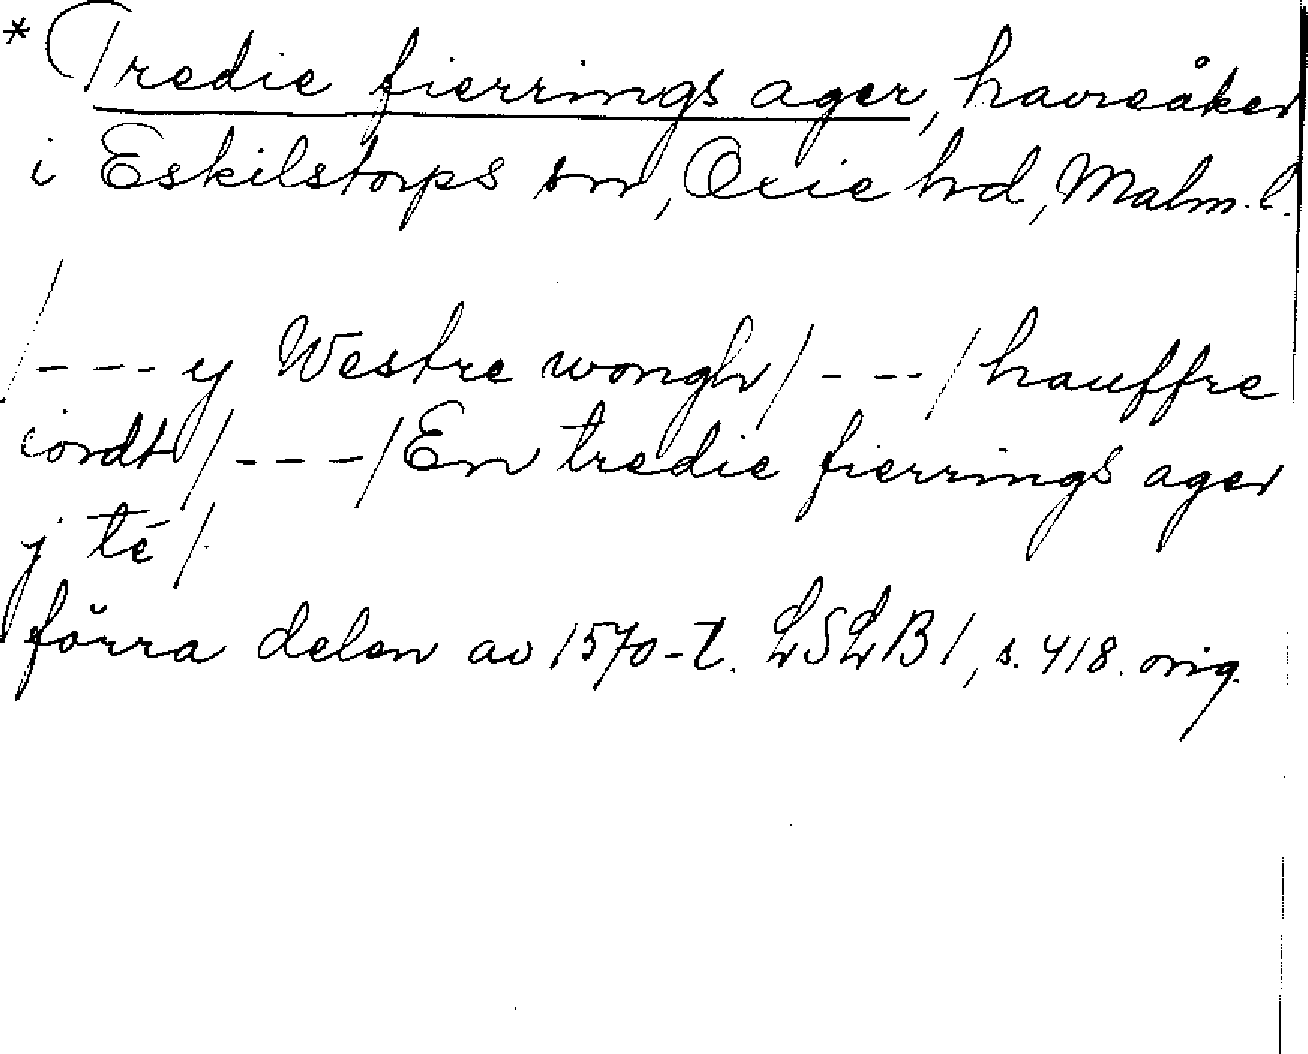 * Tredie fierrings ager, havreåker
i Eskilstorps sn, Oxie hd, Malm. l.
/---y Westre wongh/---/hauffre
iordt/---/En tredie fierrings ager
j té/.
förra delen av 1570-t. LSLB1, s. 418. orig.